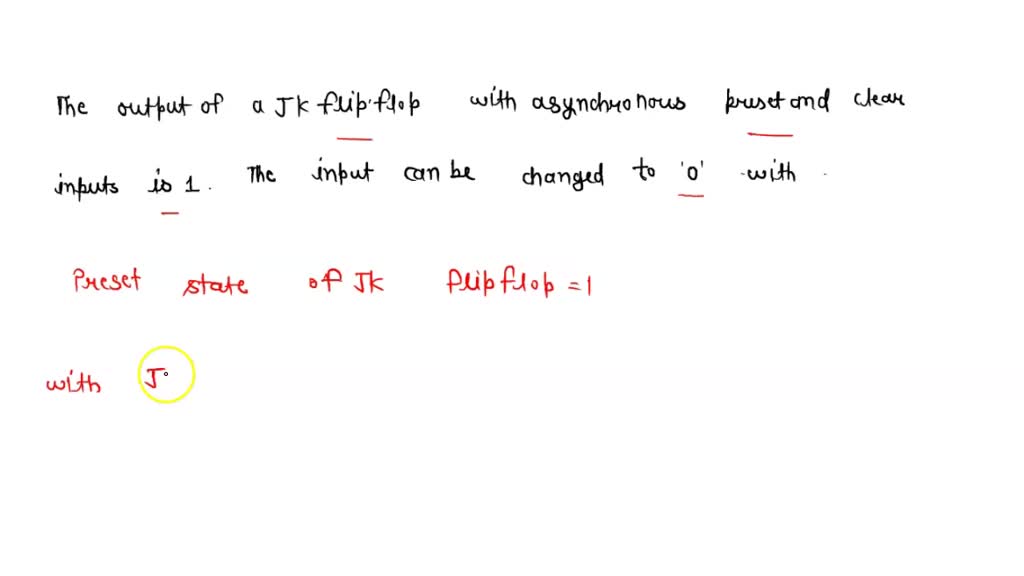 The output of a JK flip-flop with asynchronous preset and clear
inputs is 1. The input can be changed to '0' with
Preset state of JK flipflop = 1
with J